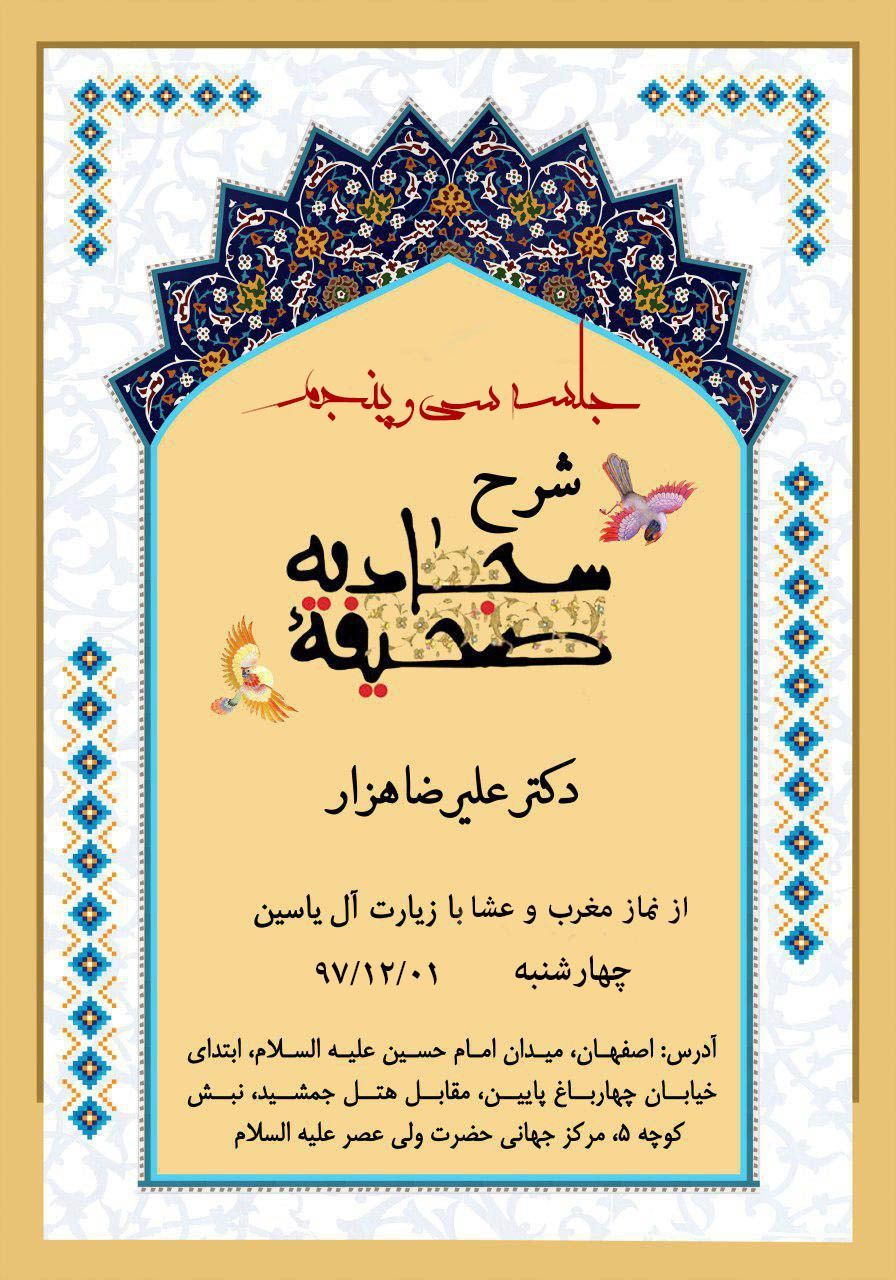 جلسه سی و پنجم
شرح
صحیفهٔ
سجادیه
دکتر علیرضا هزار
از نماز مغرب و عشا با زیارت آل یاسین
چهارشنبه ۹۷/۱۲/۰۱
آدرس: اصفهان، میدان امام حسین علیه السلام، ابتدای
خیابان چهارباغ پایین، مقابل هتل جمشید، نبش
کوچه ۵، مرکز جهانی حضرت ولی عصر علیه السلام